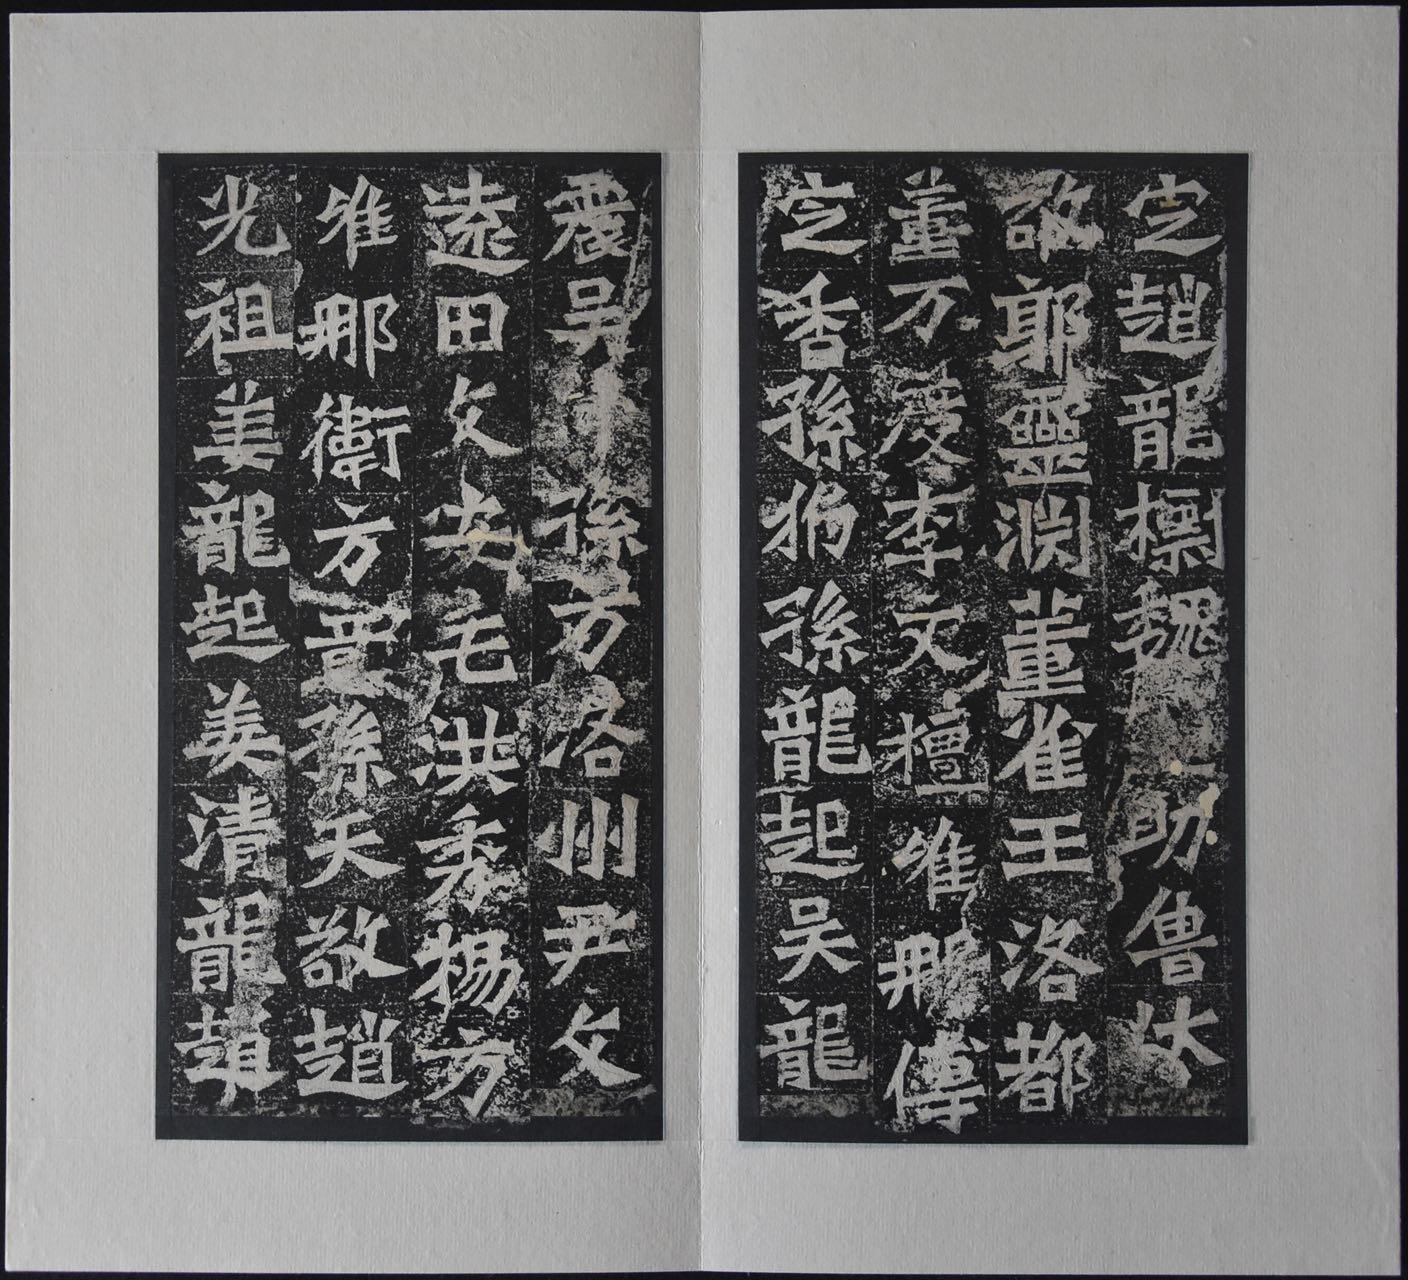 之趙龍標魏助魯伏
敬耶靈渊董雀王洛都
董万度李文檀唯那傅
之香孫豹孫龍起吴龍
震吴孫方洛州尹文
遠田文安毛洪秀楊方
唯那衛方意孫天敬趙
光祖姜龍起姜清龍趙